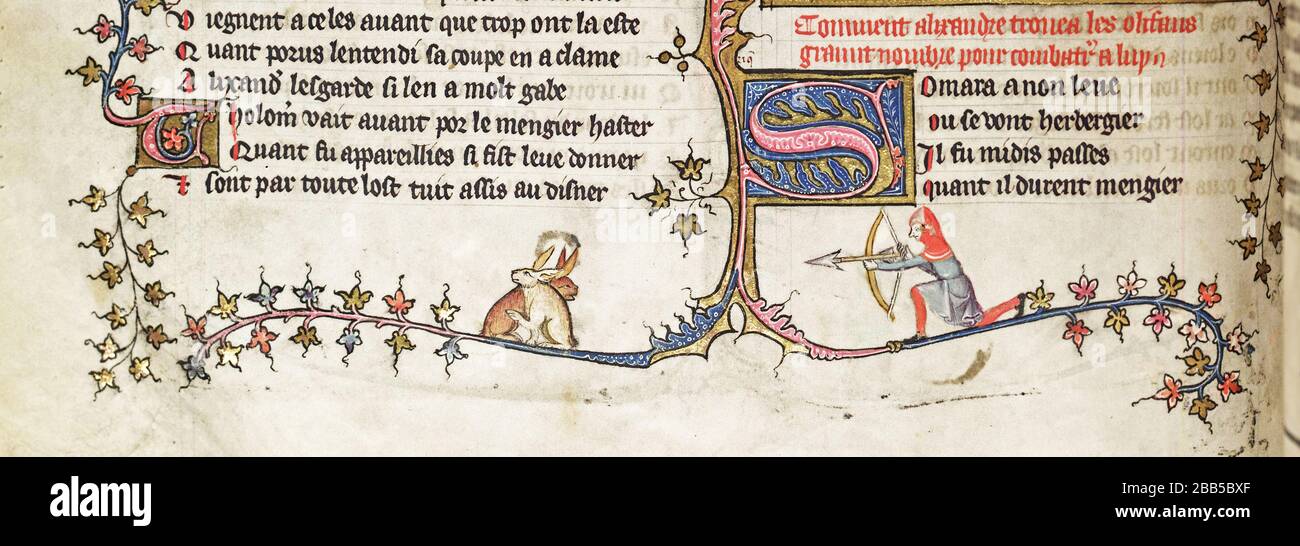 Viegnent a celes auant que trop ont la este
Quant porus lentendi sa coupe en a clame
Alixand' lesgarde si len a molt gabe
Tholom' vait auant por le mengier haster
Quant fu appareillies si fist leue donner
sont par toute lost tuit assis au disner
Comment alixandre trouea les olifans
grant nombre pour combatr' a luy
Somara a non leue
ou se vont herbergier
Il fu midis passes
quant il durent mengier
alamy
Image ID: 2BB5BXF
www.alamy.com